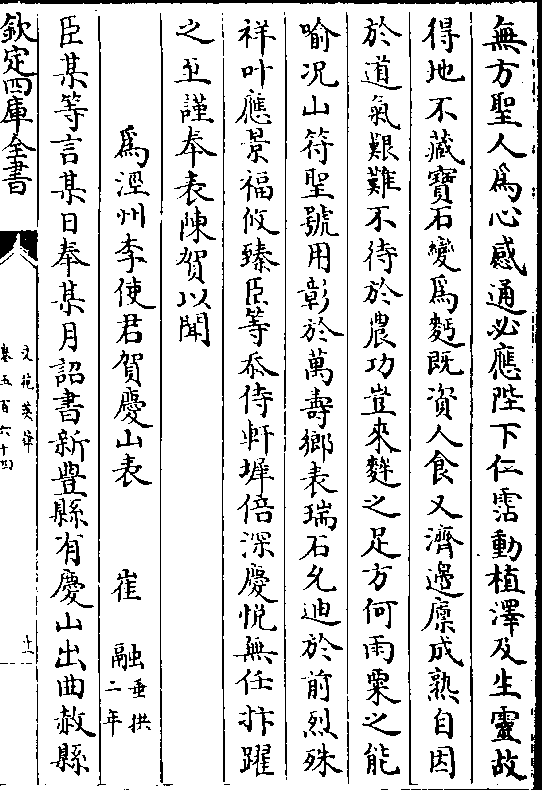 無方聖人爲心感通必應陛下仁霑動植澤及生靈故
得地不藏寶石變爲麫既資人食又濟邊廪成熟自因
於道氣艱難不待於農功豈來麰之足方何雨粟之能
喻况山符聖號用彰於萬壽鄉表瑞石允迪於前烈殊
祥叶應景福攸臻臣等忝侍軒墀倍深慶悦無任抃躍
之至謹奉表陳賀以聞
爲涇州李使君賀慶山表 崔融 垂拱二年
臣某等言某日奉某月詔書新豐縣有慶山出曲赦縣
欽定四庫全書
文苑英華
卷五百六十四
十一